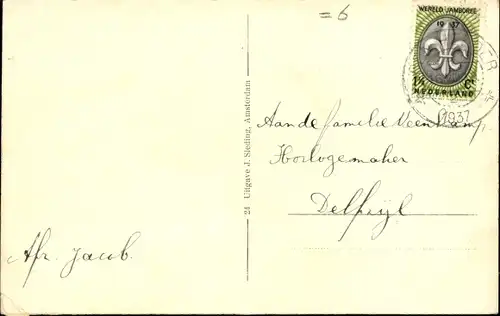 = 6
WERELD JAMBOREE
19 37
1½ Ct
NEDERLAND
1937
Aan de familie Veenkamp,
Horlogemaker
Delfzijl
Afz. Jacob.
24 Uitgave J. Sleding, Amsterdam